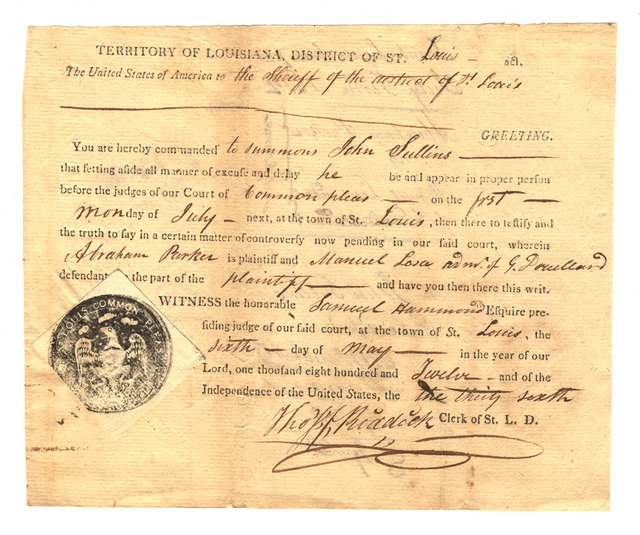 TERRITORY OF LOUISIANA, DISTRICT OF ST. Louis — sct.
The United States of America to the Sheriff of the district of St Louis
GREETING.
You are hereby commanded to summons John Sullins
that setting aside all manner of excuse and delay he be and appear in proper person
before the judges of our Court of Common pleas — on the first —
Monday of July — next, at the town of St. Louis, then there to testify and
the truth to say in a certain matter of controversy now pending in our said court, wherein
Abraham Parker is plaintiff and Manuel Lisa admr. of G. Drouillard
defendant on the part of the plaintiff — and have you then there this writ.
WITNESS the honorable Samuel Hammond Esquire pre-
siding judge of our said court, at the town of St. Louis, the
sixth — day of May — in the year of our
Lord, one thousand eight hundred and Twelve — and of the
Independence of the United States, the the thirty sixth
Thos. F. Riddick Clerk of St. L. D.
LOUIS COMMON PLEA